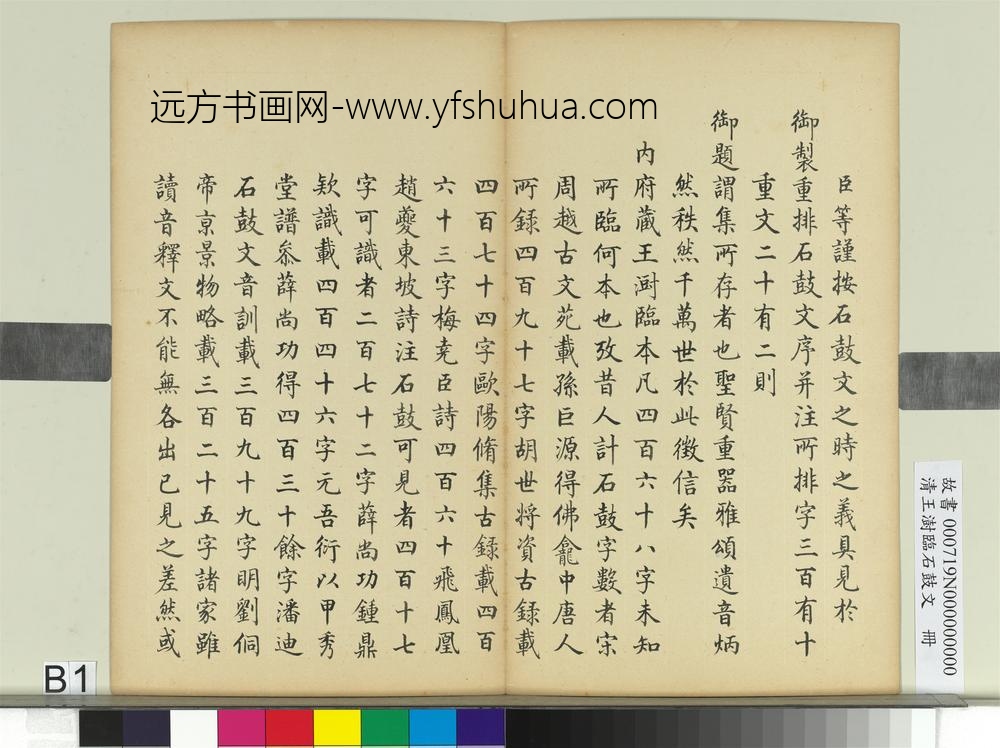 远方书画网-www.yfshuhua.com
臣等謹按石鼓文之時之義具見於
御製重排石鼓文序并注所排字三百有十
重文二十有二則
御題謂集所存者也聖賢重器雅頌遺音炳
然秩然千萬世於此徵信矣
內府藏王澍臨本凡四百六十八字未知
所臨何本也攷昔人計石鼓字數者宋
周越古文苑載孫巨源得佛龕中唐人
所録四百九十七字胡世将資古録載
四百七十四字歐陽脩集古録載四百
六十三字梅堯臣詩四百六十飛鳳凰
趙夔東坡詩注石鼓可見者四百十七
字可識者二百七十二字薛尚功鍾鼎
欵識載四百四十六字元吾衍以甲秀
堂譜叅薛尚功得四百三十餘字潘迪
石鼓文音訓載三百九十九字明劉侗
帝京景物略載三百二十五字諸家雖
讀音釋文不能無各出已見之差然或
故書 000719N000000000
清王澍臨石鼓文 冊
B1